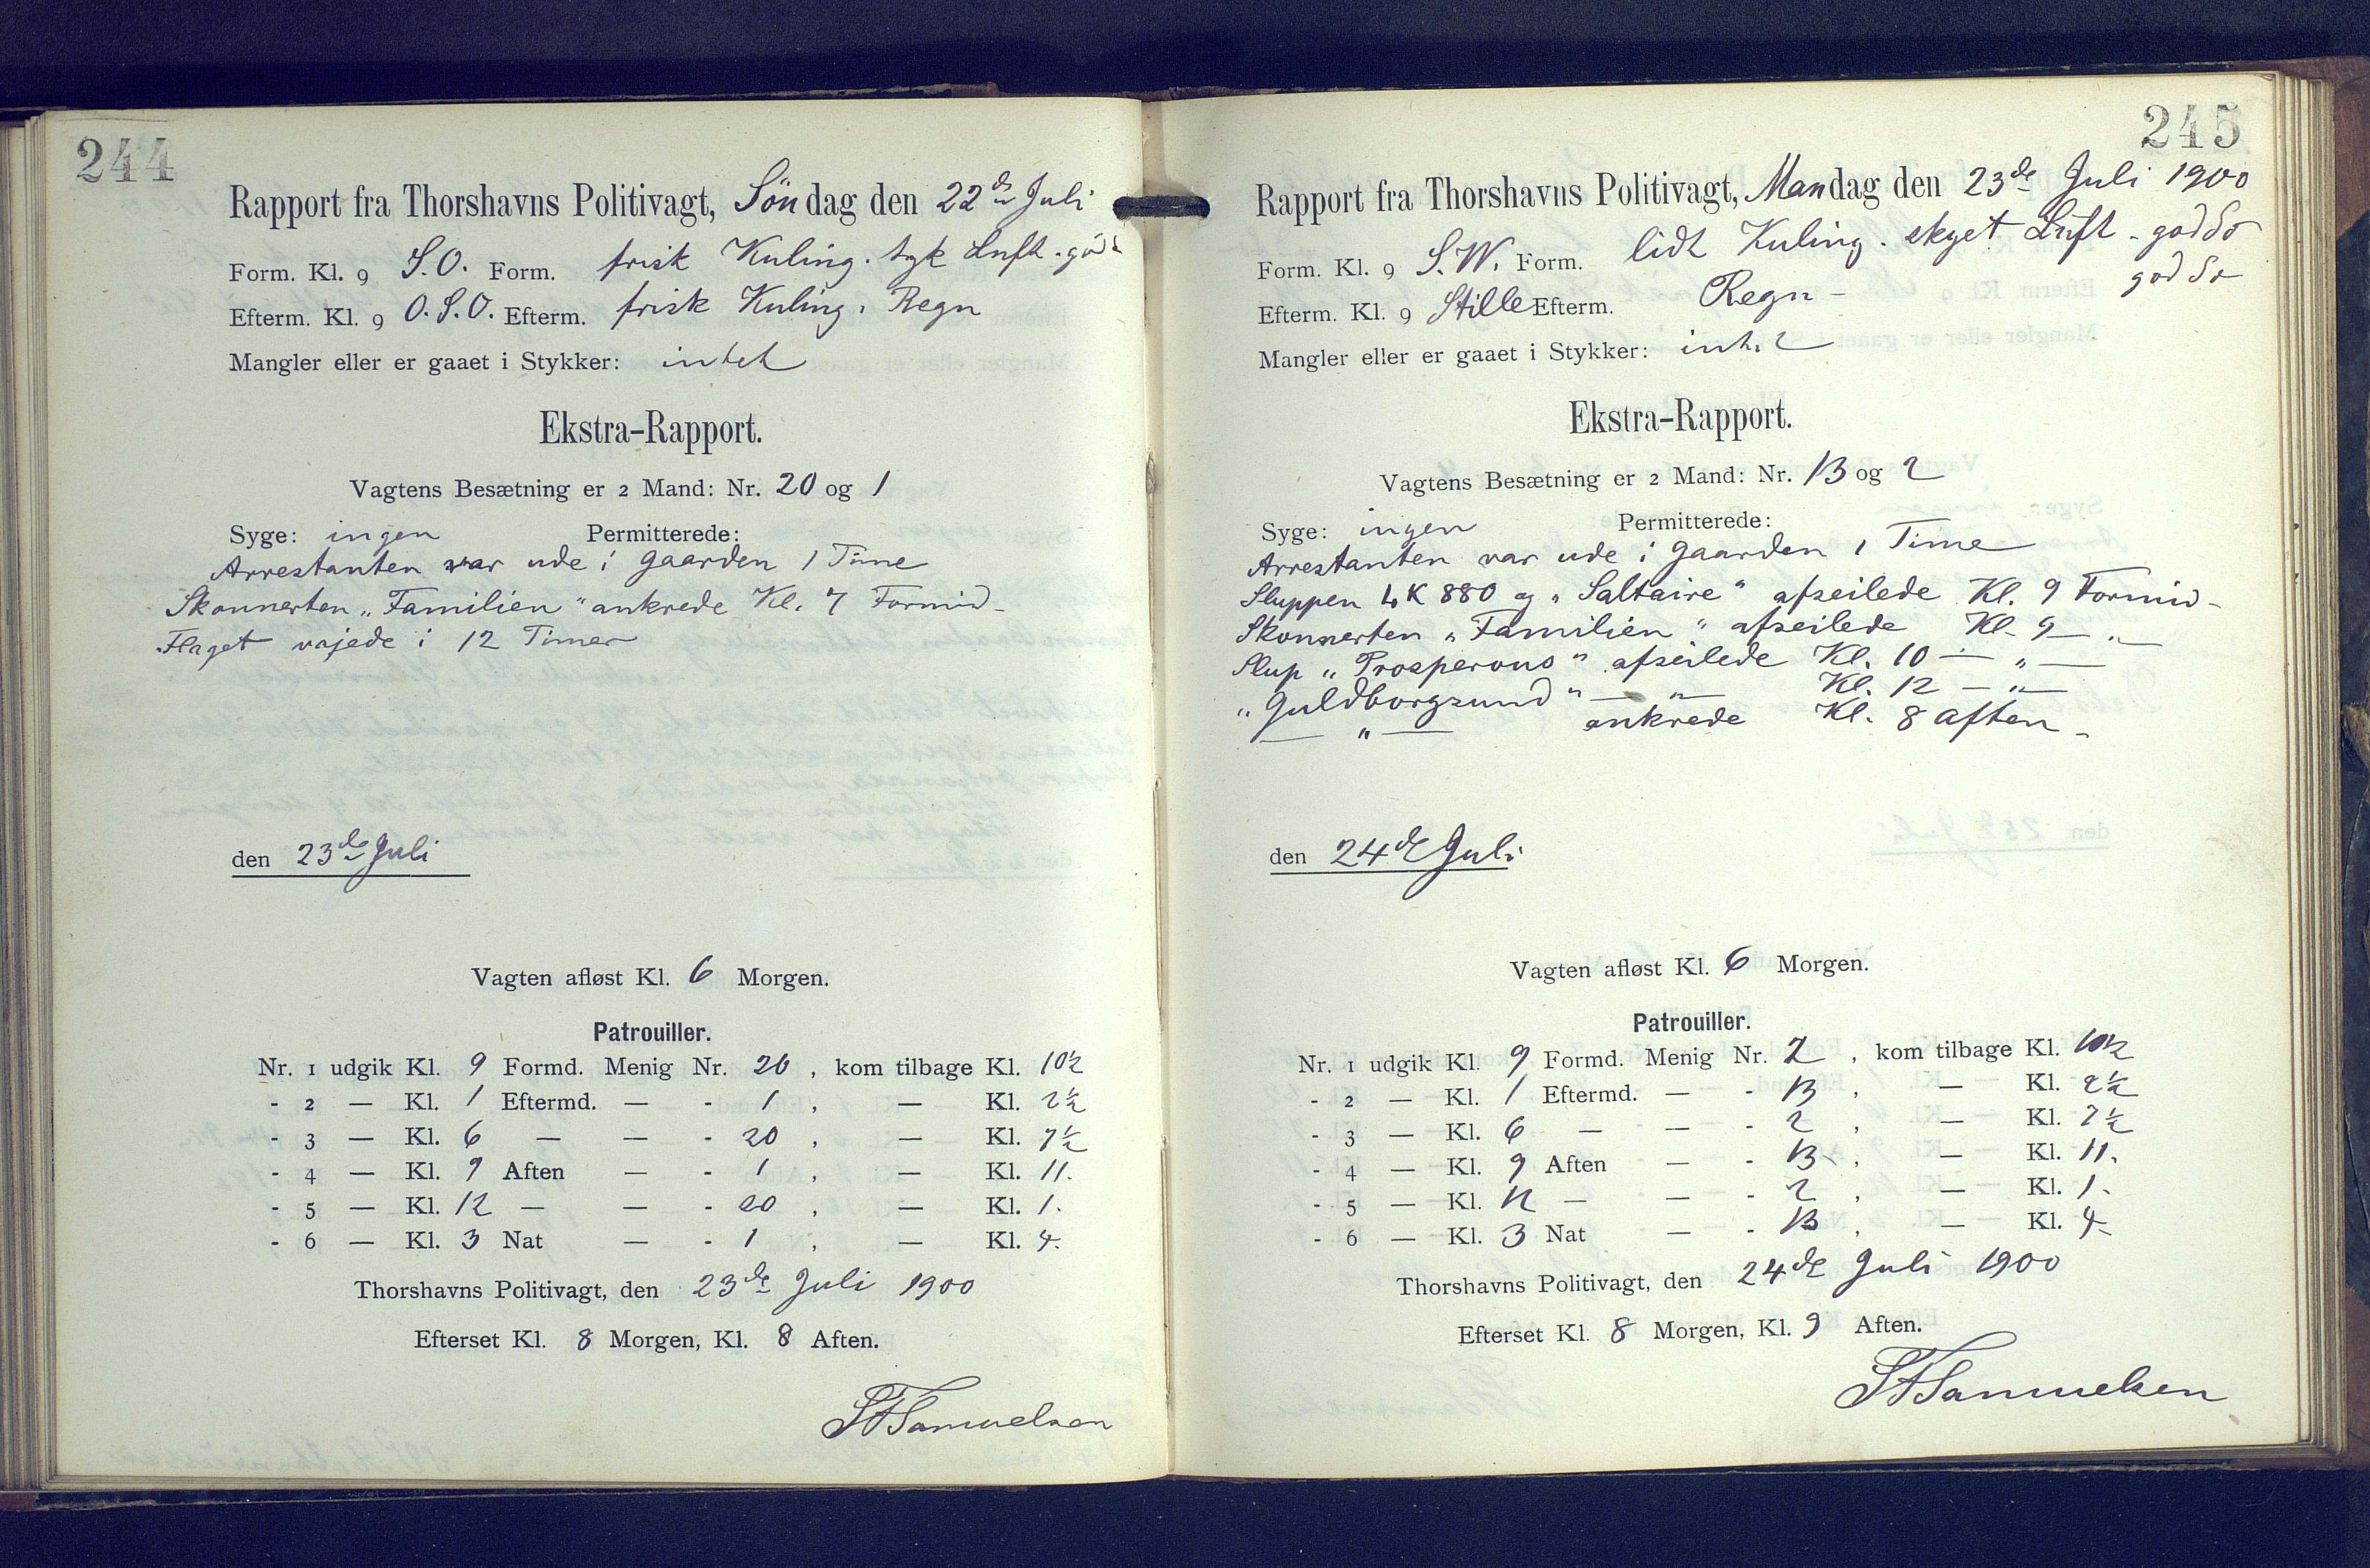 244
Rapport fra Thorshavns Politivagt, Söndag den 22de Juli
Form. Kl. 9 S.O. Form. frisk Kuling. tyk Luft.
Efterm. Kl. 9 O.S.O. Efterm. frisk Kuling. Regn
Mangler eller er gaaet i Stykker: intet
Ekstra-Rapport.
Vagtens Besætning er 2 Mand: Nr. 20 og 1
Syge: ingen Permitterede:
Arrestanten var ude i Gaarden 1 Time
Skonnerten „Familien" ankrede Kl. 7 Formid-
Flaget vajede i 12 Timer
den 23de Juli
Vagten afløst Kl. 6 Morgen.
Patrouiller.
Nr. 1 udgik Kl. 9 Formd. Menig Nr. 20, kom tilbage Kl. 10½
- 2 — Kl. 1 Eftermd. — - 1, — Kl. 2½
- 3 — Kl. 6 — — - 20, — Kl. 7½
- 4 — Kl. 9 Aften — - 1, — Kl. 11.
- 5 — Kl. 12 — — - 20, — Kl. 1.
- 6 — Kl. 3 Nat — - 1, — Kl. 4.
Thorshavns Politivagt, den 23de Juli 1900
Efterset Kl. 8 Morgen, Kl. 8 Aften.
Samuelsen
245
Rapport fra Thorshavns Politivagt, Mandag den 23de Juli 1900
Form. Kl. 9 S.W. Form. lidt Kuling. skyet Luft - god So
Efterm. Kl. 9 Stille Efterm. Regn - god So
Mangler eller er gaaet i Stykker: intet
Ekstra-Rapport.
Vagtens Besætning er 2 Mand: Nr. 13 og 2
Syge: ingen Permitterede:
Arrestanten var ude i Gaarden 1 Time
Sluppen LK 880 og „Saltaire" afseilede Kl. 9 Formid-
Skonnerten „Familien" afseilede Kl. 9 — „ —
Slup „Prosperous" afseilede Kl. 10 — „ —
„Guldborgsund" — „ — Kl. 12 — „ —
— „ — ankrede Kl. 8 Aften -
den 24de Juli
Vagten afløst Kl. 6 Morgen.
Patrouiller.
Nr. 1 udgik Kl. 9 Formd. Menig Nr. 2, kom tilbage Kl. 10½
- 2 — Kl. 1 Eftermd. — - 13, — Kl. 2½
- 3 — Kl. 6 — — - 2, — Kl. 7½
- 4 — Kl. 9 Aften — - 13, — Kl. 11.
- 5 — Kl. 12 — — - 2, — Kl. 1.
- 6 — Kl. 3 Nat — - 13, — Kl. 4
Thorshavns Politivagt, den 24de Juli 1900
Efterset Kl. 8 Morgen, Kl. 9 Aften.
Samuelsen